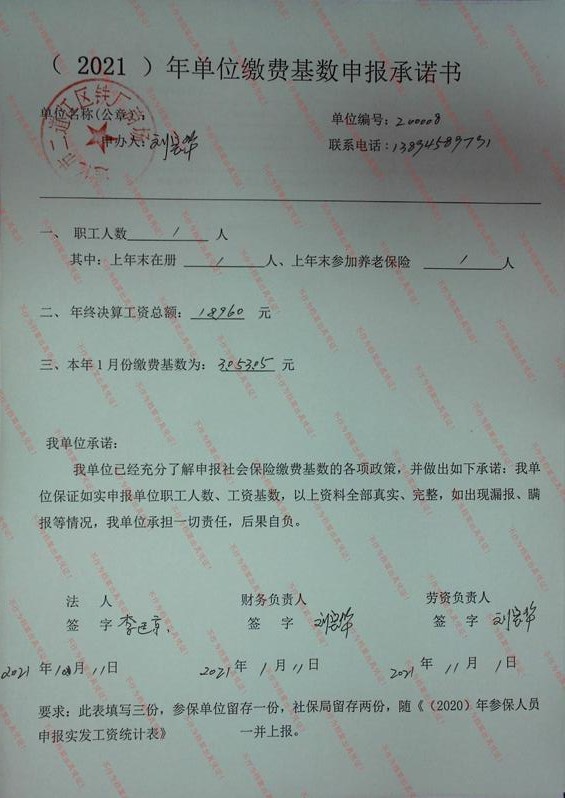 （ 2021 ）年单位缴费基数申报承诺书
单位名称(公章)： 单位编号：200008
申办人：刘 联系电话：13894589731
一、 职工人数 1 人
其中：上年末在册 1 人、上年末参加养老保险 1 人
二、 年终决算工资总额： 18960 元
三、本年 1 月份缴费基数为： 3053.05 元
我单位承诺：
我单位已经充分了解申报社会保险缴费基数的各项政策，并做出如下承诺：我单
位保证如实申报单位职工人数、工资基数，以上资料全部真实、完整，如出现漏报、瞒
报等情况，我单位承担一切责任，后果自负。
法 人 财务负责人 劳资负责人
签 字 李 签 字 刘 签 字 刘
2021 年 月 11 日 2021 年 1 月 11 日 2021 年 11 月 1 日
要求：此表填写三份，参保单位留存一份，社保局留存两份，随《（2020）年参保人员
申报实发工资统计表》 一并上报。